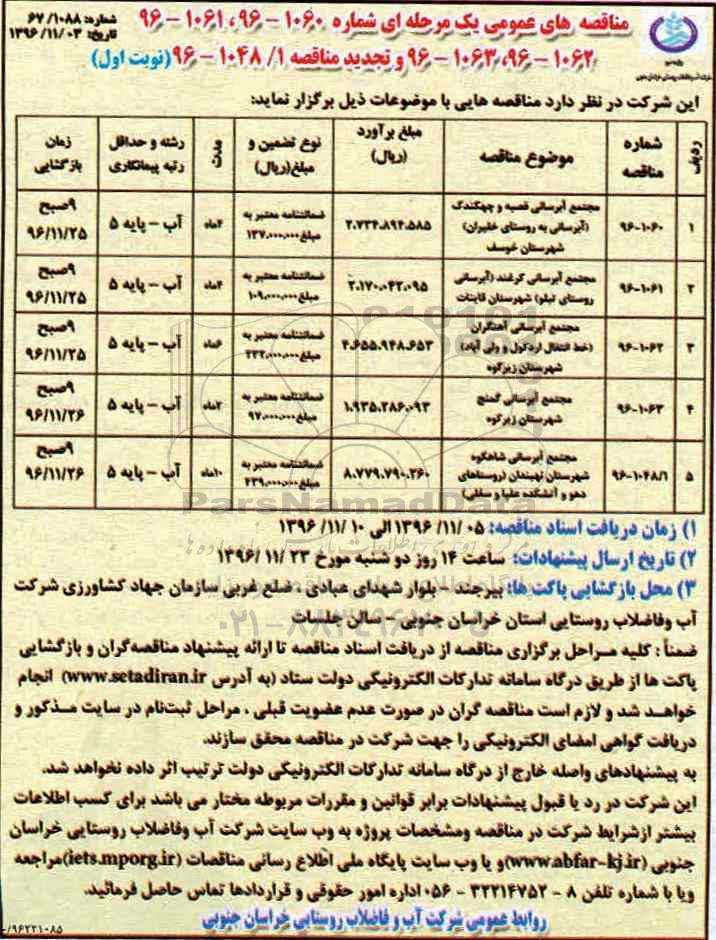 شماره: ۶۷/۱۰۸۸
تاریخ: ۱۳۹۶/۱۱/۰۳
مناقصه های عمومی یک مرحله ای شماره ۱۰۶۰ – ۹۶، ۱۰۶۱ – ۹۶
۱۰۶۲ – ۹۶، ۱۰۶۳ – ۹۶ و تجدید مناقصه ۱/ ۱۰۴۸ – ۹۶ (نوبت اول)
این شرکت در نظر دارد مناقصه هایی با موضوعات ذیل برگزار نماید:
ردیف | شماره مناقصه | موضوع مناقصه | مبلغ برآورد (ریال) | نوع تضمین و مبلغ(ریال) | مدت | رشته و حداقل رتبه پیمانکاری | زمان بازگشایی
۱ | ۹۶-۱۰۶۰ | مجتمع آبرسانی قصبه و چهکندک (آبرسانی به روستای خلیران) شهرستان خوسف | ۲.۷۳۴.۸۹۴.۵۸۵ | ضمانتنامه معتبر به مبلغ ۱۳۷.۰۰۰.۰۰۰ | ۴ماه | آب – پایه ۵ | ۹صبح ۹۶/۱۱/۲۵
۲ | ۹۶-۱۰۶۱ | مجتمع آبرسانی کرغند (آبرسانی روستای تبلو) شهرستان قاینات | ۲.۱۷۰.۰۴۲.۰۹۵ | ضمانتنامه معتبر به مبلغ ۱۰۹.۰۰۰.۰۰۰ | ۴ماه | آب – پایه ۵ | ۹صبح ۹۶/۱۱/۲۵
۳ | ۹۶-۱۰۶۲ | مجتمع آبرسانی آهنگران (خط انتقال اردکول و ولی آباد) شهرستان زیرکوه | ۴.۶۵۵.۹۴۸.۶۵۳ | ضمانتنامه معتبر به مبلغ ۲۳۲.۰۰۰.۰۰۰ | ۶ماه | آب – پایه ۵ | ۹صبح ۹۶/۱۱/۲۵
۴ | ۹۶-۱۰۶۳ | مجتمع آبرسانی گمنج شهرستان زیرکوه | ۱.۹۳۵.۲۸۶.۰۹۳ | ضمانتنامه معتبر به مبلغ ۹۷.۰۰۰.۰۰۰ | ۲ماه | آب – پایه ۵ | ۹صبح ۹۶/۱۱/۲۶
۵ | ۹۶-۱۰۴۸/۱ | مجتمع آبرسانی شاهکوه شهرستان نهبندان (روستاهای دهو و آتشکده علیا و سفلی) | ۸.۷۷۹.۷۹۰.۲۶۰ | ضمانتنامه معتبر به مبلغ ۴۳۹.۰۰۰.۰۰۰ | ۱۰ماه | آب – پایه ۵ | ۹صبح ۹۶/۱۱/۲۶
ParsNamadData
۱) زمان دریافت اسناد مناقصه: ۰۵ /۱۱/ ۱۳۹۶ الی ۱۰ /۱۱/ ۱۳۹۶
۲) تاریخ ارسال پیشنهادات: ساعت ۱۴ روز دو شنبه مورخ ۲۳ /۱۱ /۱۳۹۶
۳) محل بازگشایی پاکت ها: بیرجند – بلوار شهدای عبادی ، ضلع غربی سازمان جهاد کشاورزی شرکت
آب وفاضلاب روستایی استان خراسان جنوبی – سالن جلسات
ضمناً : کلیه مراحل برگزاری مناقصه از دریافت اسناد مناقصه تا ارائه پیشنهاد مناقصه‌گران و بازگشایی
پاکت ها از طریق درگاه سامانه تدارکات الکترونیکی دولت ستاد (به آدرس www.setadiran.ir) انجام
خواهد شد و لازم است مناقصه گران در صورت عدم عضویت قبلی ، مراحل ثبت‌نام در سایت مذکور و
دریافت گواهی امضای الکترونیکی را جهت شرکت در مناقصه محقق سازند.
به پیشنهادهای واصله خارج از درگاه سامانه تدارکات الکترونیکی دولت ترتیب اثر داده نخواهد شد.
این شرکت در رد یا قبول پیشنهادات برابر قوانین و مقررات مربوطه مختار می باشد برای کسب اطلاعات
بیشتر ازشرایط شرکت در مناقصه ومشخصات پروژه به وب سایت شرکت آب وفاضلاب روستایی خراسان
جنوبی (www.abfar-kj.ir)و یا وب سایت پایگاه ملی اطلاع رسانی مناقصات (iets.mporg.ir)مراجعه
ویا با شماره تلفن ۸ – ۳۲۲۱۴۷۵۲ – ۰۵۶ اداره امور حقوقی و قراردادها تماس حاصل فرمائید.
روابط عمومی شرکت آب و فاضلاب روستایی خراسان جنوبی
۹۶۲۲۱۰۸۵/